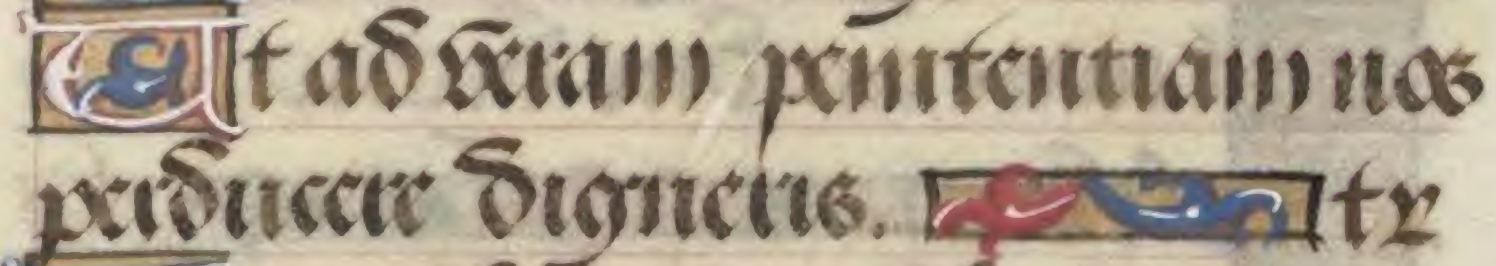 Ut ad veram penitentiam nos
perducere digneris. te